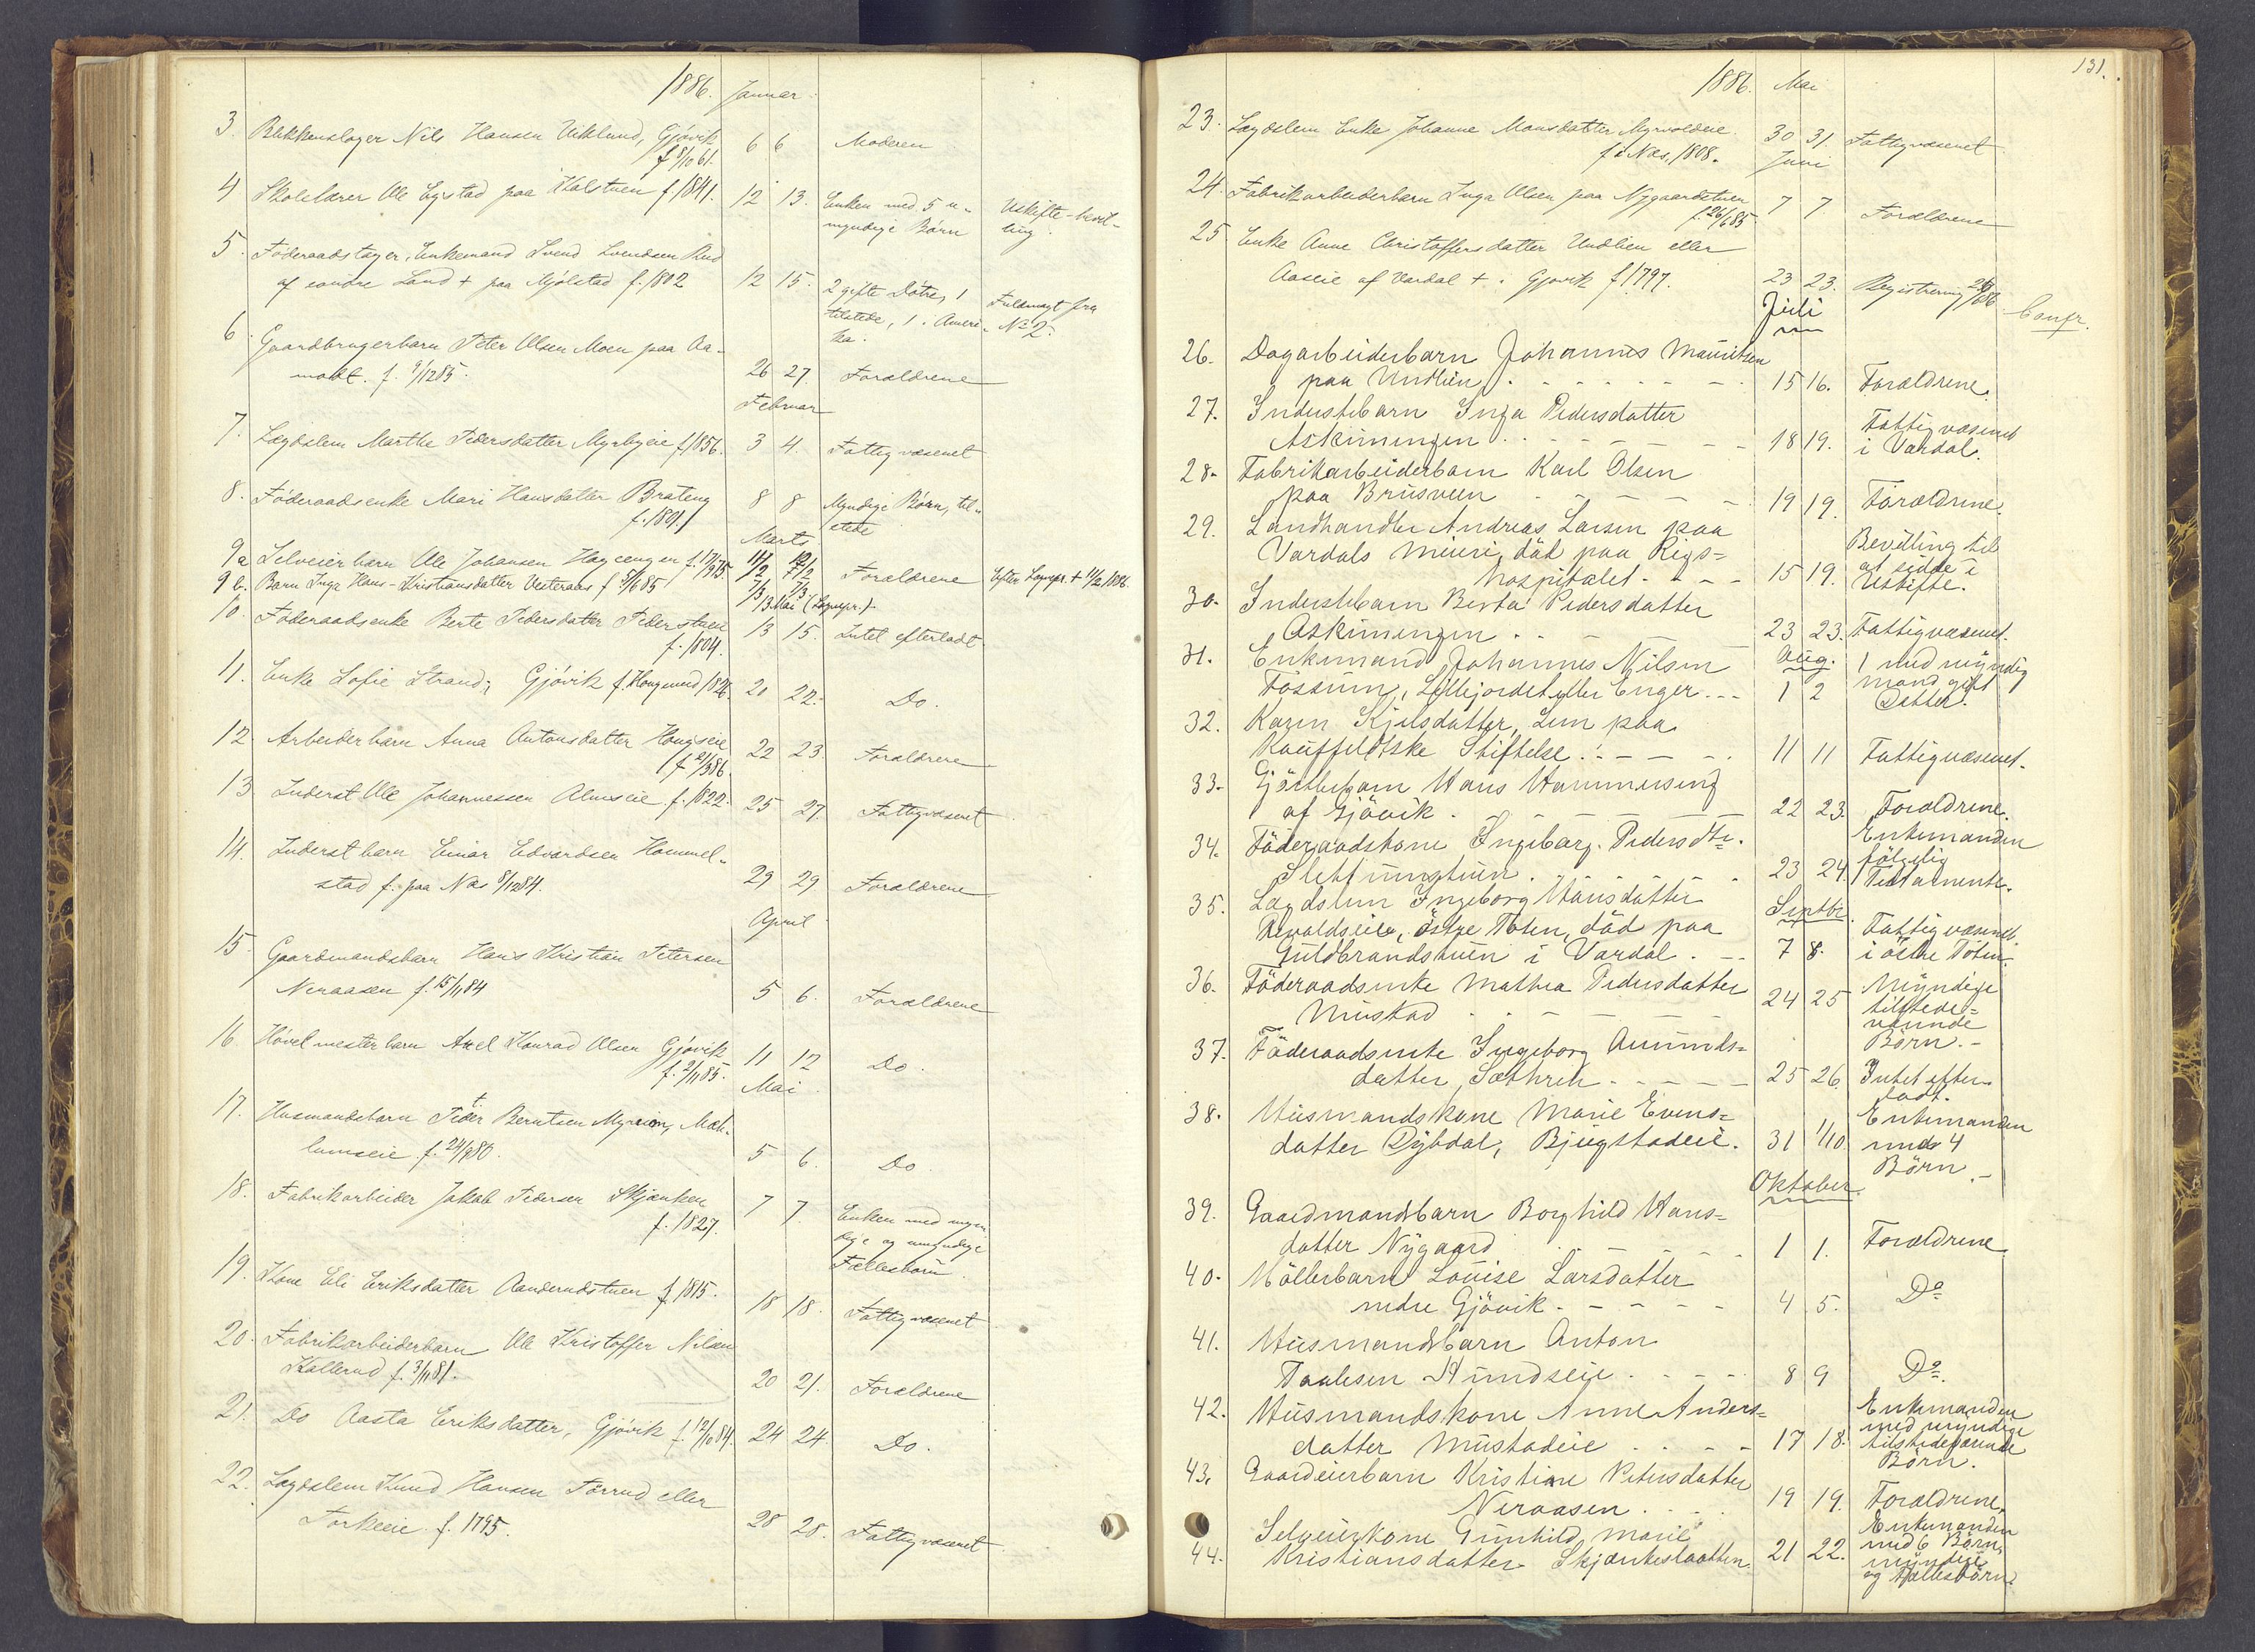 1886. Januar
3. Blikkenslager Nils Hansen Viklund, Gjøvik 6 6 Moderen
f 8/10 61.
4 Skolelærer Ole Egstad paa Kolstuen f. 1841. 12 13. Enken med 5 u- Uskifte-bevil-
myndige Børn ling.
5. Føderaadstager, Enkemand Svend Svendsen Rud
af søndre Land + paa Mjølstad f. 1802 12 15. 2 gifte Døtre, 1 Fuldmagt fra
tilstede, 1 i Ameri- No 2.
ka.
6. Gaardbrugerbarn Peter Olsen Moen paa Aa-
modt. f. 9/12 85. 26 27 Forældrene
Februar
7. Lægdslem Marthe Pedersdatter Myrbyeie f 1856. 3 4. Fattigvæsenet
8. Føderaadsenke Mari Hansdatter Bråteng 8 8 Myndige Børn, til-
f. 1801. stede
Marts
9a Selveierbarn Ole Johansen Hageengen Forældrene Efter Lægepr.
9b. Barn Inga Hans-Kristiansdatter Vesteraas f 5/6 85
13 Mai (Lægepr.)
10. Føderaadsenke Berte Pedersdatter Pederstuen 13 15. Intet efterladt.
f. 1804.
11. Enke Sofie Strand, Gjøvik f. Hongerud 1826. 20 22. Do.
12. Arbeiderbarn Anna Antonsdatter Hongseie 22 23 Forældrene
f 2/3 86
13 Inderst Ole Johannessen Almseie f. 1822. 25 27. Fattigvæsenet
14. Inderstbarn Einar Edvardsen Hommel-
stad f. paa Næs 8/12 84. 29 29 Forældrene
April
15. Gaardmandsbarn Hans Kristian Petersen
Neraasen f. 15/11 84 5 6. Forældrene
16. Høvelmesterbarn Axel Konrad Olsen Gjøvik 11 12 Do.
f. 2/11 85.
Mai
17. Husmandsbarn Peter Berntsen Myreion, Mæh-
lumseie f. 24/9 80. 5 6. Do.
18. Fabrikarbeider Jakob Pedersen Skjænken 7 7. Enken med myn-
f. 1827. dige og umyndige
Fællesbørn.
19. Kone Eli Eriksdatter Aanderudstuen f 1815. 18 18. Fattigvæsenet
20. Fabrikarbeiderbarn Ole Kristoffer Nilsen
Kallerud f. 3/11 81. 20 21. Forældrene
21. Do Aasta Eriksdatter, Gjøvik f. 12/10 84. 24 24. Do.
22. Lægdslem Knud Hansen Førrud eller
Torkeeie f. 1795. 28 28. Fattigvæsenet
131.
1886. Mai
23. Lægdslem Enke Johanne Monsdatter Myrvoldeie 30 31. Fattigvæsenet
f. i Næs, 1808. Juni
24. Fabrikarbeiderbarn Inga Olsen paa Nygaardstuen 7 7 Forældrene
f. 26/6 85
25 Enke Anne Christoffersdatter Undlien eller
Aaseie af Vardal + i Gjøvik f 1797. 23 23. Registrering Confr.
Juli
26. Dagarbeiderbarn Johannes Mauritsen
paa Undlien 15 16. Forældrene.
27. Inderstbarn Inga Pedersdatter Fattigvæsenet
Askimengen 18 19. i Vardal.
28. Fabrikarbeiderbarn Karl Olsen
paa Brusveen 19 19. Forældrene.
29. Landhandler Andreas Larsen paa Bevilling til
Vardals Meieri, död paa Rigs= at sidde i
hospitalet 15 19. Uskifte.
30. Inderstbarn Berta Pedersdatter
Askimengen 23 23. Fattigvæsenet.
31. Enkemand Johannes Nilsen Aug. 1 med myndig
Fossum, Lillejordet eller Enger 1 2 mand gift
Datter.
32. Karen Kjelsdatter, Lem paa
Kauffeldtske Stiftelse 11 11 Fattigvæsenet.
33. Gjörtlerbarn Hans Hammerseng
af Gjövik 22 23. Forældrene.
34. Föderaadskone Ingeborg Pedersdtr. Enkemanden
Slettungtuen 23 24. følgelig
Testamente.
35. Lægdslem Ingeborg Hansdatter Septbr.
Revoldseie, Østre Toten, död paa Fattigvæsenet
Guldbrandstuen i Vardal 7 8. i östre Toten.
36. Föderaadsenke Mathea Pedersdatter 24 25 Myndige
Mustad tilstede=
værende
Börn.
37. Föderaadsenke Ingeborg Amunds=
datter Sæthreh 25 26. Intet efter-
ladt.
38. Husmandskone Marie Evens= Enkemanden
datter Dybdal, Bjugstadeie. 31 1/10 med 4
Börn
Oktober.
39. Gaardmandbarn Borghild Hans=
datter Nygaard 1 1. Forældrene
40. Möllerbarn Louise Larsdatter
nedre Gjövik 4 5. Do
41. Husmandbarn Anton
Paulsen Hundseie 8 9 Do.
42. Husmandskone Anne Anders= Enkemanden
datter Mustadeie 17 18. med myndige
tilstedeværende
Börn.
43. Gaardeierbarn Kristine Petersdatter
Neraasen 19 19. Forældrene.
44. Selveierkone Gunhild Marie Enkemanden
Kristiansdatter Skjænkeslaatten. 21 22. med 6 Börn,
myndige
og fællesbörn.